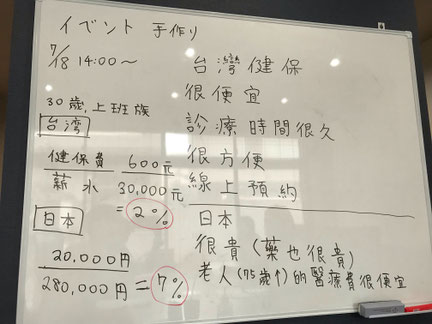 イベント 手作り
7/18 14:00～
30歳,上班族
台湾
健保費 600元
薪水 30,000元
= 2%
日本
20.000円
280,000円 = 7%
台灣健保
很便宜
診療時間很久
很方便
線上預約
日本
很貴(藥也很貴)
老人(75歳↑)的醫療費很便宜